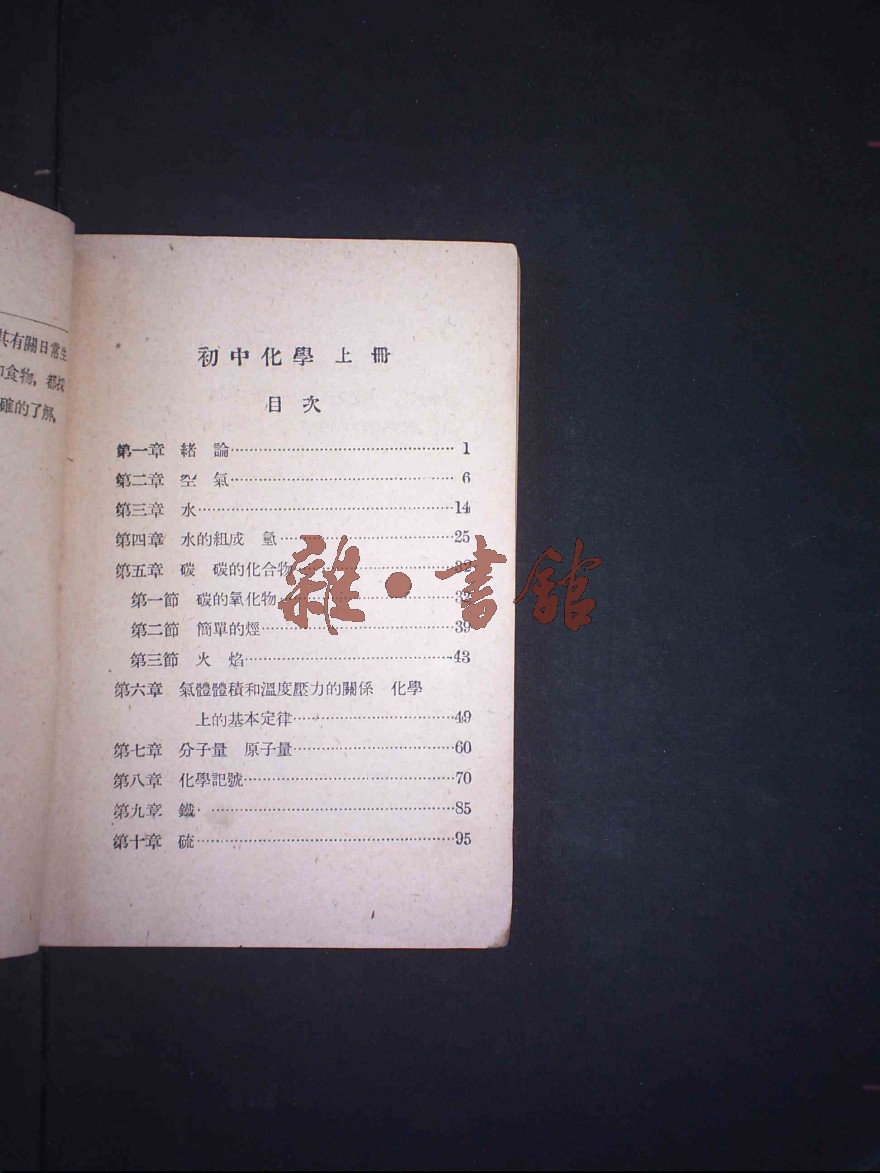 共有關日常生
和食物，都採
確的了解。
初中化學 上冊
目次
第一章 緒 論 1
第二章 空 氣 6
第三章 水 14
第四章 水的組成 氫 25
第五章 碳 碳的化合物 32
第一節 碳的氧化物 32
第二節 簡單的烴 39
第三節 火 焰 43
第六章 氣體體積和溫度壓力的關係 化學
上的基本定律 49
第七章 分子量 原子量 60
第八章 化學記號 70
第九章 鐵 85
第十章 硫 95
雜·書館